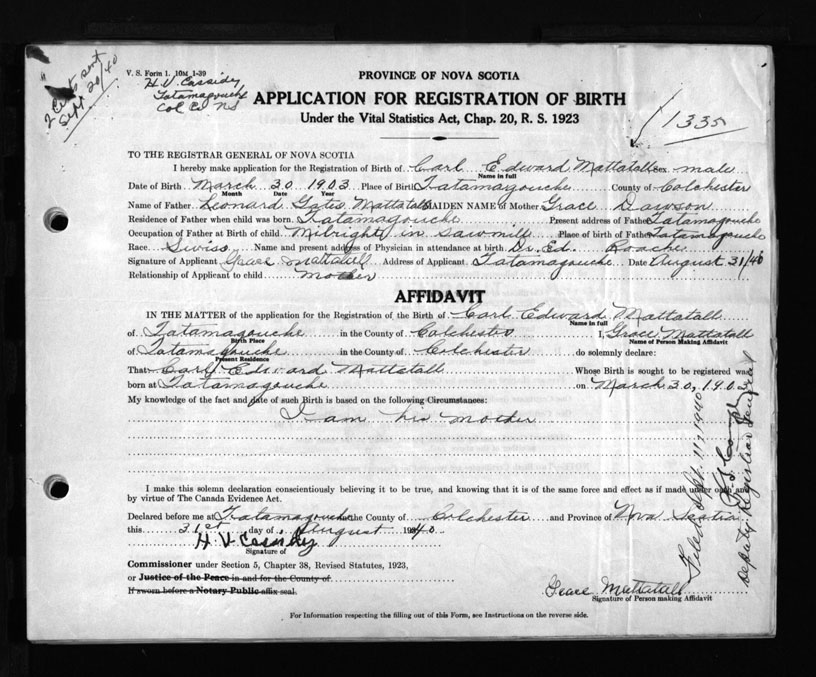 2 Certs sent
Sept 20/40
V. S. Form 1. 10M 1-39
H. V. Cassidy
Tatamagouche
Col Co NS
PROVINCE OF NOVA SCOTIA
APPLICATION FOR REGISTRATION OF BIRTH
Under the Vital Statistics Act, Chap. 20, R. S. 1923
1335
TO THE REGISTRAR GENERAL OF NOVA SCOTIA
I hereby make application for the Registration of Birth of Carl Edward Mattatall Sex male
Name in full
Date of Birth March 30 1903 Place of Birth Tatamagouche County of Colchester
Month Date Year
Name of Father Leonard Gates Mattatall MAIDEN NAME of Mother Grace Dawson
Residence of Father when child was born Tatamagouche Present address of Father Tatamagouche
Occupation of Father at Birth of child Milright in Sawmill Place of birth of Father Tatamagouche
Race Swiss Name and present address of Physician in attendance at birth Dr. Ed. Roache
Signature of Applicant Grace Mattatall Address of Applicant Tatamagouche Date August 31/40
Relationship of Applicant to child Mother
AFFIDAVIT
IN THE MATTER of the application for the Registration of the Birth of Carl Edward Mattatall
Name in full
of Tatamagouche in the County of Colchester I, Grace Mattatall
Birth Place Name of Person Making Affidavit
of Tatamagouche in the County of Colchester do solemnly declare:
Present Residence
That Carl Edward Mattatall Whose Birth is sought to be registered was
born at Tatamagouche on March 30, 1903
My knowledge of the fact and date of such Birth is based on the following Circumstances:
I am his mother
I make this solemn declaration conscientiously believing it to be true, and knowing that it is of the same force and effect as if made under oath and
by virtue of The Canada Evidence Act.
Declared before me at Tatamagouche in the County of Colchester and Province of Nova Scotia
this 31st day of August 1940
H V Cassidy
Signature of
Commissioner under Section 5, Chapter 38, Revised Statutes, 1923,
or Justice of the Peace in and for the County of
If sworn before a Notary Public affix seal.
Grace Mattatall
Signature of Person making Affidavit
For Information respecting the filling out of this Form, see Instructions on the reverse side.
Filed Sept. 11, 1940
Deputy Registrar General